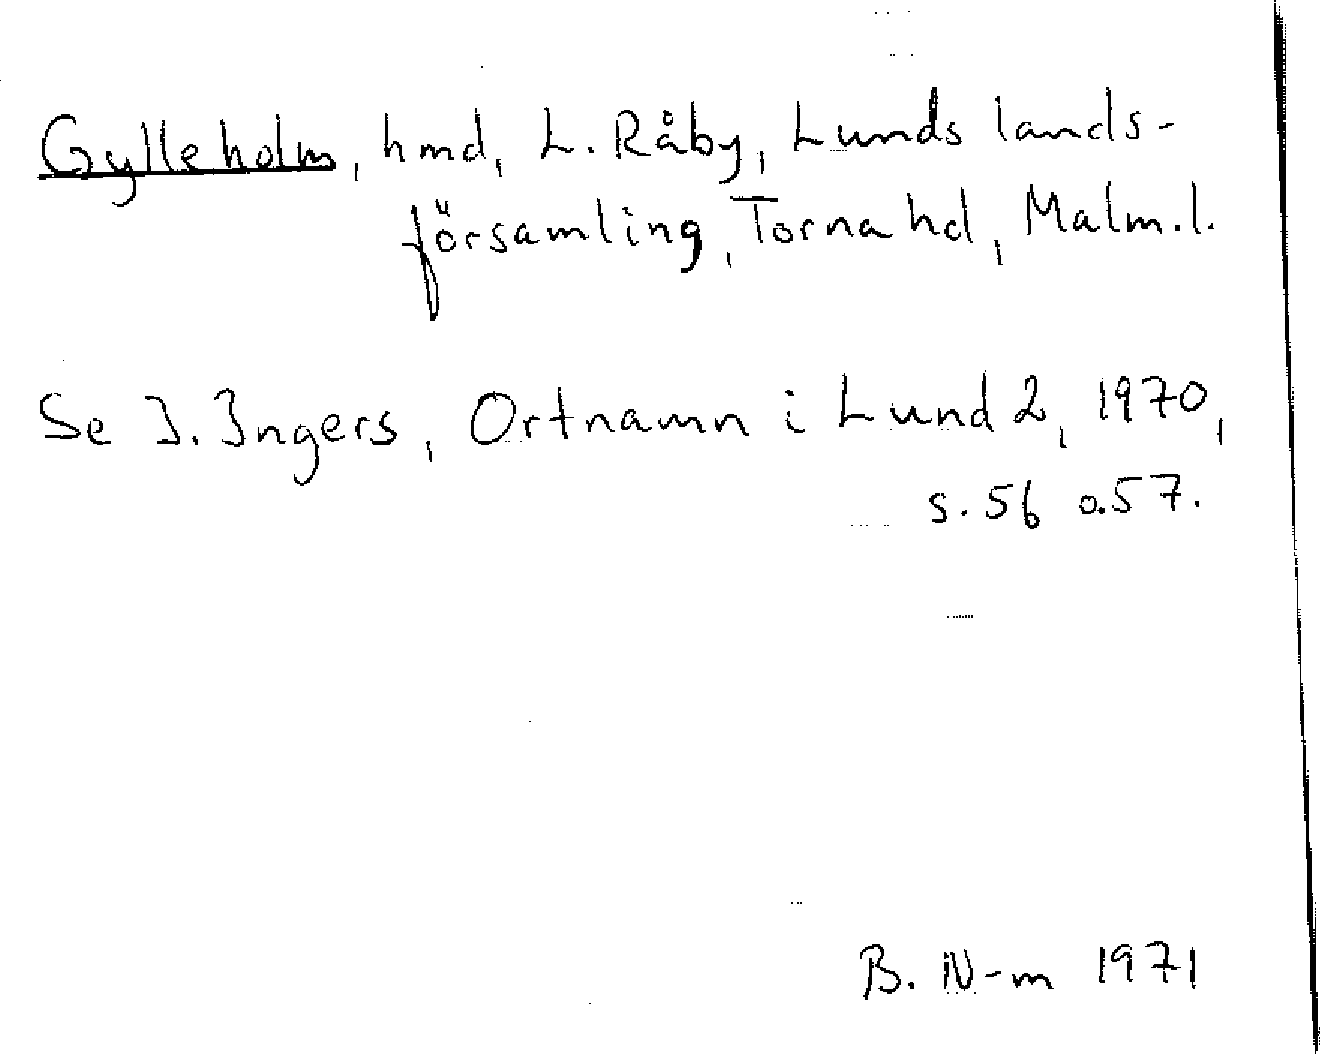 Gylleholm, hmd, L. Råby, Lunds lands-
församling, Torna hd, Malm.l.
Se I. Ingers, Ortnamn i Lund 2, 1970,
s. 56 o.57.
B. N-m 1971